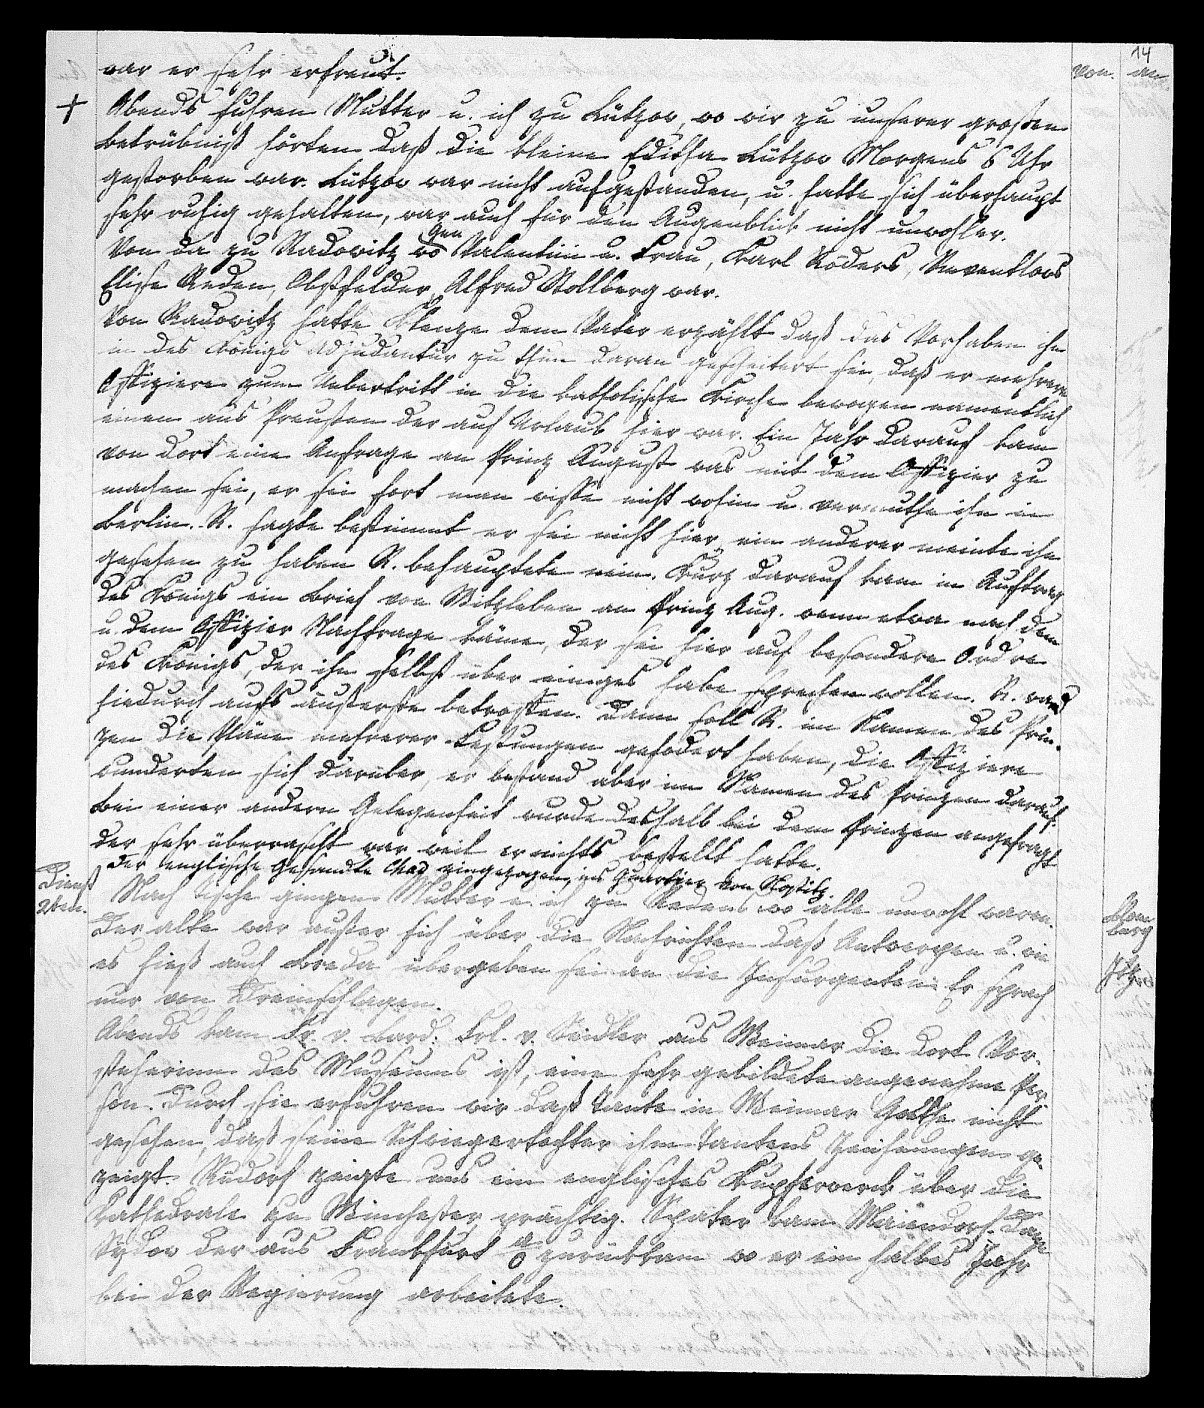 14
von. an.
war er sehr erfreut.
+ Abends fuhren Mutter u. ich zu Lützow, wo wir zu unserer großen
Betrübniß hörten daß die kleine Editha Lützow Morgens 6 Uhr
gestorben war. Lützow war nicht aufgestanden, u. hatte sich überhaupt
sehr ruhig gehalten, war auch für den Augenblick nicht unwohler.
Von da zu Radowitz wo Gen Valentini u. Frau, Karl Röders, Reventlows
Elise Reden, Obstfelder, Alfred Stollberg war.
Von Radowitz hatte Klenze dem Vater erzählt daß das Vorhaben ihn
in des Königs Adjudantur zu thun daran gescheitert sei, daß er mehrere
Offiziere zum Uebertritt in die katholische Kirche bewogen namentlich
einen aus Preußen der auf Urlaub hier war. Ein Jahr darauf kam
von dort eine Anfrage an Prinz August was mit dem Offizier zu
machen sei, er sei fort man wisse nicht wohin u. vermuthe ihn in
Berlin. R. sagte bestimmt er sei nicht hier, ein anderer meinte ihn
gesehen zu haben R. behauptete nein. Kurz darauf kam im Auftrag
des Königs ein Brief von Witzleben an Prinz Aug. wenn etwa nach dem
u. dem Offizier Nachfrage käme, der sei hier auf besondere Ordre
des Königs, der ihn selbst über einiges habe sprechen wollen. R. ward
hiedurch aufs äußerste betroffen. Dann soll R. im Namen des Prin-
zen die Pläne mehrerer Festungen gefodert haben, die Offiziere
wunderten sich darüber, er bestand aber im Namen des Prinzen darauf.
Bei einer andern Gelegenheit wurde deshalb bei dem Prinzen angefragt
der sehr überrascht war weil er nichts bestellt hatte.
Der englische Gesandte Chad eingezogen, ins Quartier von Nostitz.
Dienst Nach Tische gingen Mutter u. ich zu Redens wo alle unwohl waren.
Der alte war außer sich über die Nachrichten daß Antwerpen u. wie
es hieß auch Breda übergeben sei an die Insurgenten. Er sprach
nur von Dreinschlagen.
Abends kam Fr. v. Bard. Frl. v. Seidler aus Weimar die dort Vor-
steherinn des Museums ist, eine sehr gebildete angenehme Per
son. Durch sie erfuhren wir daß Tante in Weimar Goethe nicht
gesehen, daß seine Schwiegertochter ihm Tantens Zeichnungen ge-
zeigt. Rudorf zeigte uns ein englisches Kupferwerk über die
Kathedrale zu Winchester, prächtig. Später kam Maiendorf. Dann
Sydow der aus Frankfurt a/O zurückkam wo er ein halbes Jahr
bei der Regierung arbeitete.